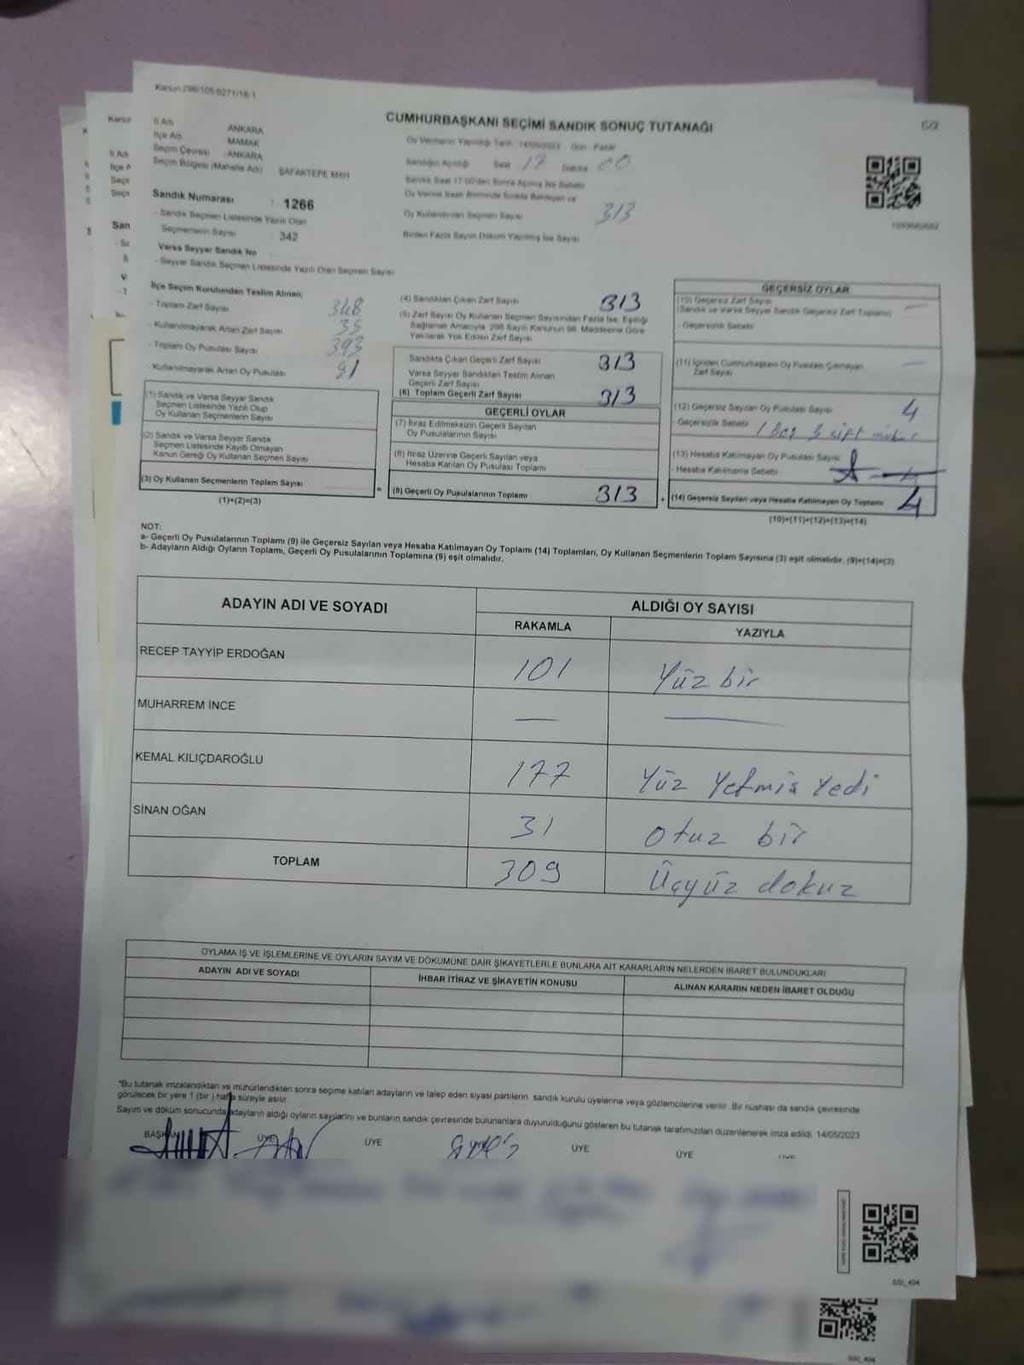 CUMHURBAŞKANI SEÇİMİ SANDIK SONUÇ TUTANAĞI
C/2
İl Adı ANKARA
İlçe Adı MAMAK
Seçim Çevresi ANKARA
Seçim Bölgesi (Mahalle Adı) ŞAFAKTEPE MAH
Oy Vermenin Yapıldığı Tarih 14/05/2023 Gün Pazar
Sandığın Açıldığı Saat 17 Dakika 00
Oy Kullandırılan Seçmen Sayısı 313
Birden Fazla Sayım Döküm Yapılmış İse Sayısı
Sandık Numarası : 1266
- Sandık Seçmen Listesinde Yazılı Olan
Seçmenlerin Sayısı : 342
Varsa Seyyar Sandık No
- Seyyar Sandık Seçmen Listesinde Yazılı Olan Seçmen Sayısı
İlçe Seçim Kurulundan Teslim Alınan;
- Toplam Zarf Sayısı 348
- Kullanılmayarak Artan Zarf Sayısı 35
- Toplam Oy Pusulası Sayısı 393
- Kullanılmayarak Artan Oy Pusulası
(1) Sandık ve Varsa Seyyar Sandık
Seçmen Listesinde Yazılı Olup
Oy Kullanan Seçmenlerin Sayısı
(2) Sandık ve Varsa Seyyar Sandık
Seçmen Listesinde Kayıtlı Olmayan
Kanun Gereği Oy Kullanan Seçmen Sayısı
(3) Oy Kullanan Seçmenlerin Toplam Sayısı
(1)+(2)=(3)
(4) Sandıktan Çıkan Zarf Sayısı 313
(5) Zarf Sayısı Oy Kullanan Seçmen Sayısından Fazla İse, Eşitliği
Sağlamak Amacıyla 298 Sayılı Kanunun 98. Maddesine Göre
Yakılarak Yok Edilen Zarf Sayısı
Sandıkta Çıkan Geçerli Zarf Sayısı 313
Varsa Seyyar Sandıktan Teslim Alınan
Geçerli Zarf Sayısı
(6) Toplam Geçerli Zarf Sayısı 313
GEÇERLİ OYLAR
(7) İtiraz Edilmeksizin Geçerli Sayılan
Oy Pusulalarının Sayısı
(8) İtiraz Üzerine Geçerli Sayılan veya
Hesaba Katılan Oy Pusulası Toplamı
(9) Geçerli Oy Pusulalarının Toplamı 313
GEÇERSİZ OYLAR
(10) Geçersiz Zarf Sayısı
(Sandık ve Varsa Seyyar Sandık Geçersiz Zarf Toplamı) —
- Geçersizlik Sebebi
(11) İçinden Cumhurbaşkanı Oy Pusulası Çıkmayan
Zarf Sayısı —
(12) Geçersiz Sayılan Oy Pusulası Sayısı 4
- Geçersizlik Sebebi 1 Boş 3 çift
(13) Hesaba Katılmayan Oy Pusulası Sayısı
- Hesaba Katılmama Sebebi
(14) Geçersiz Sayılan veya Hesaba Katılmayan Oy Toplamı 4
(10)+(11)+(12)+(13)=(14)
NOT:
a- Geçerli Oy Pusulalarının Toplamı (9) ile Geçersiz Sayılan veya Hesaba Katılmayan Oy Toplamı (14) Toplamları, Oy Kullanan Seçmenlerin Toplam Sayısına (3) eşit olmalıdır. (9)+(14)=(3)
b- Adayların Aldığı Oyların Toplamı, Geçerli Oy Pusulalarının Toplamına (9) eşit olmalıdır.
ADAYIN ADI VE SOYADI ALDIĞI OY SAYISI
RAKAMLA YAZIYLA
RECEP TAYYİP ERDOĞAN 101 Yüz bir
MUHARREM İNCE — —
KEMAL KILIÇDAROĞLU 177 Yüz Yetmiş Yedi
SİNAN OĞAN 31 otuz bir
TOPLAM 309 Üçyüz dokuz
OYLAMA İŞ VE İŞLEMLERİNE VE OYLARIN SAYIM VE DÖKÜMÜNE DAİR ŞİKAYETLERLE BUNLARA AİT KARARLARIN NELERDEN İBARET BULUNDUKLARI
ADAYIN ADI VE SOYADI İHBAR İTİRAZ VE ŞİKAYETİN KONUSU ALINAN KARARIN NEDEN İBARET OLDUĞU
"Bu tutanak imzalandıktan ve mühürlendikten sonra seçime katılan adayların ve talep eden siyasi partilerin, sandık kurulu üyelerine veya gözlemcilerine verilir. Bir nüshası da sandık çevresinde
görülecek bir yere 1 (bir) hafta süreyle asılır.
Sayım ve döküm sonucunda adayların aldığı oyların sayılarını ve bunların sandık çevresinde bulunanlara duyurulduğunu gösteren bu tutanak tarafımızdan düzenlenerek imza edildi. 14/05/2023
BAŞKAN ÜYE ÜYE ÜYE ÜYE